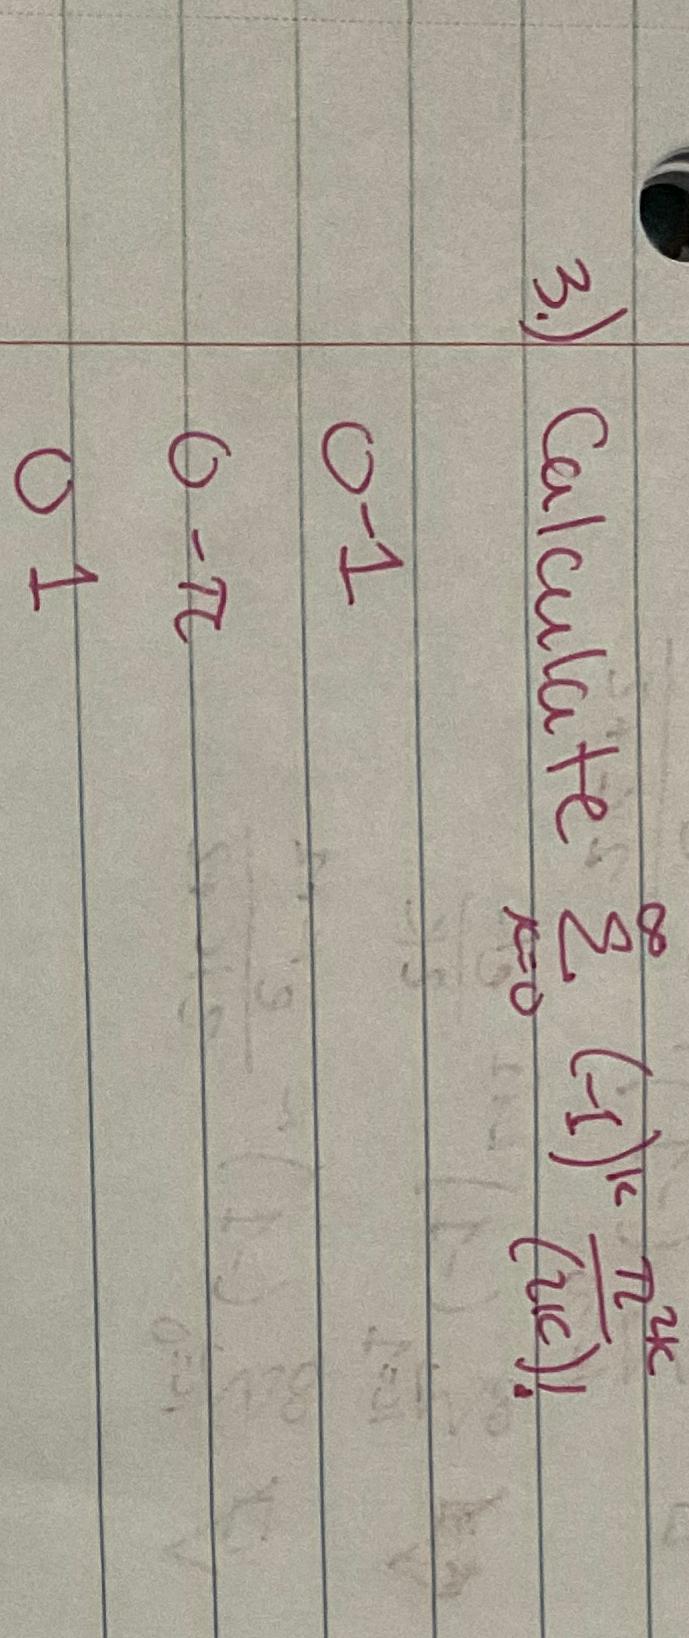 3.) Calculate ∞ Σ k=0 (-1)^k π^2k / (2k)!
O -1
O -π
O 1